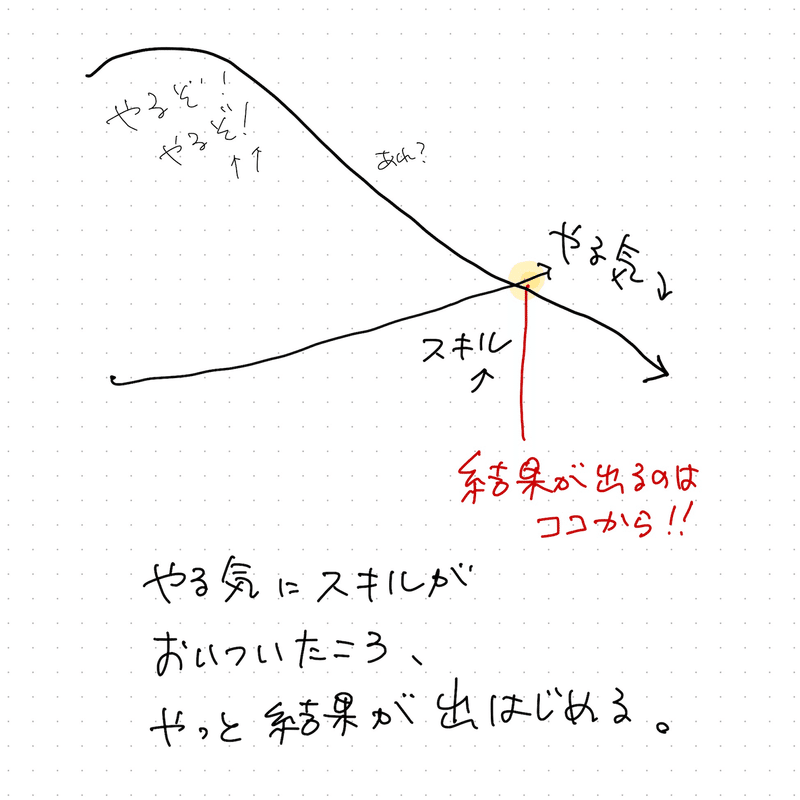 やるぞ!
やるぞ!
↑↑
あれ?
やる気↓
スキル
↑
結果が出るのは
ココから!!
やる気にスキルが
おいついたころ、
やっと結果が出はじめる。